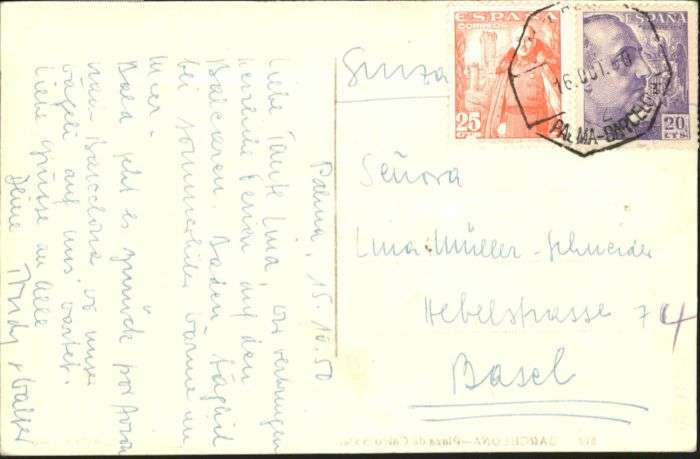 Palma, 15.10.50
Liebe Tante Lina, wir verbringen
herrliche Ferien auf den
Balearen. Baden täglich
bei sommerlicher Wärme im
Meer.
Bald geht es zurück per Avion
nach Barcelona wo unser
auf uns wartet.
Liebe Grüsse an Alle
Deine Trudy + Walter
Suiza
ESPAÑA
CORREOS
25
CTS
ESPAÑA
20
CTS
16.OCT.50
PALMA-BARCELONA
Señora
Lina Müller-Schneider
Hebelstrasse 74
Basel
BARCELONA.—Plaza de